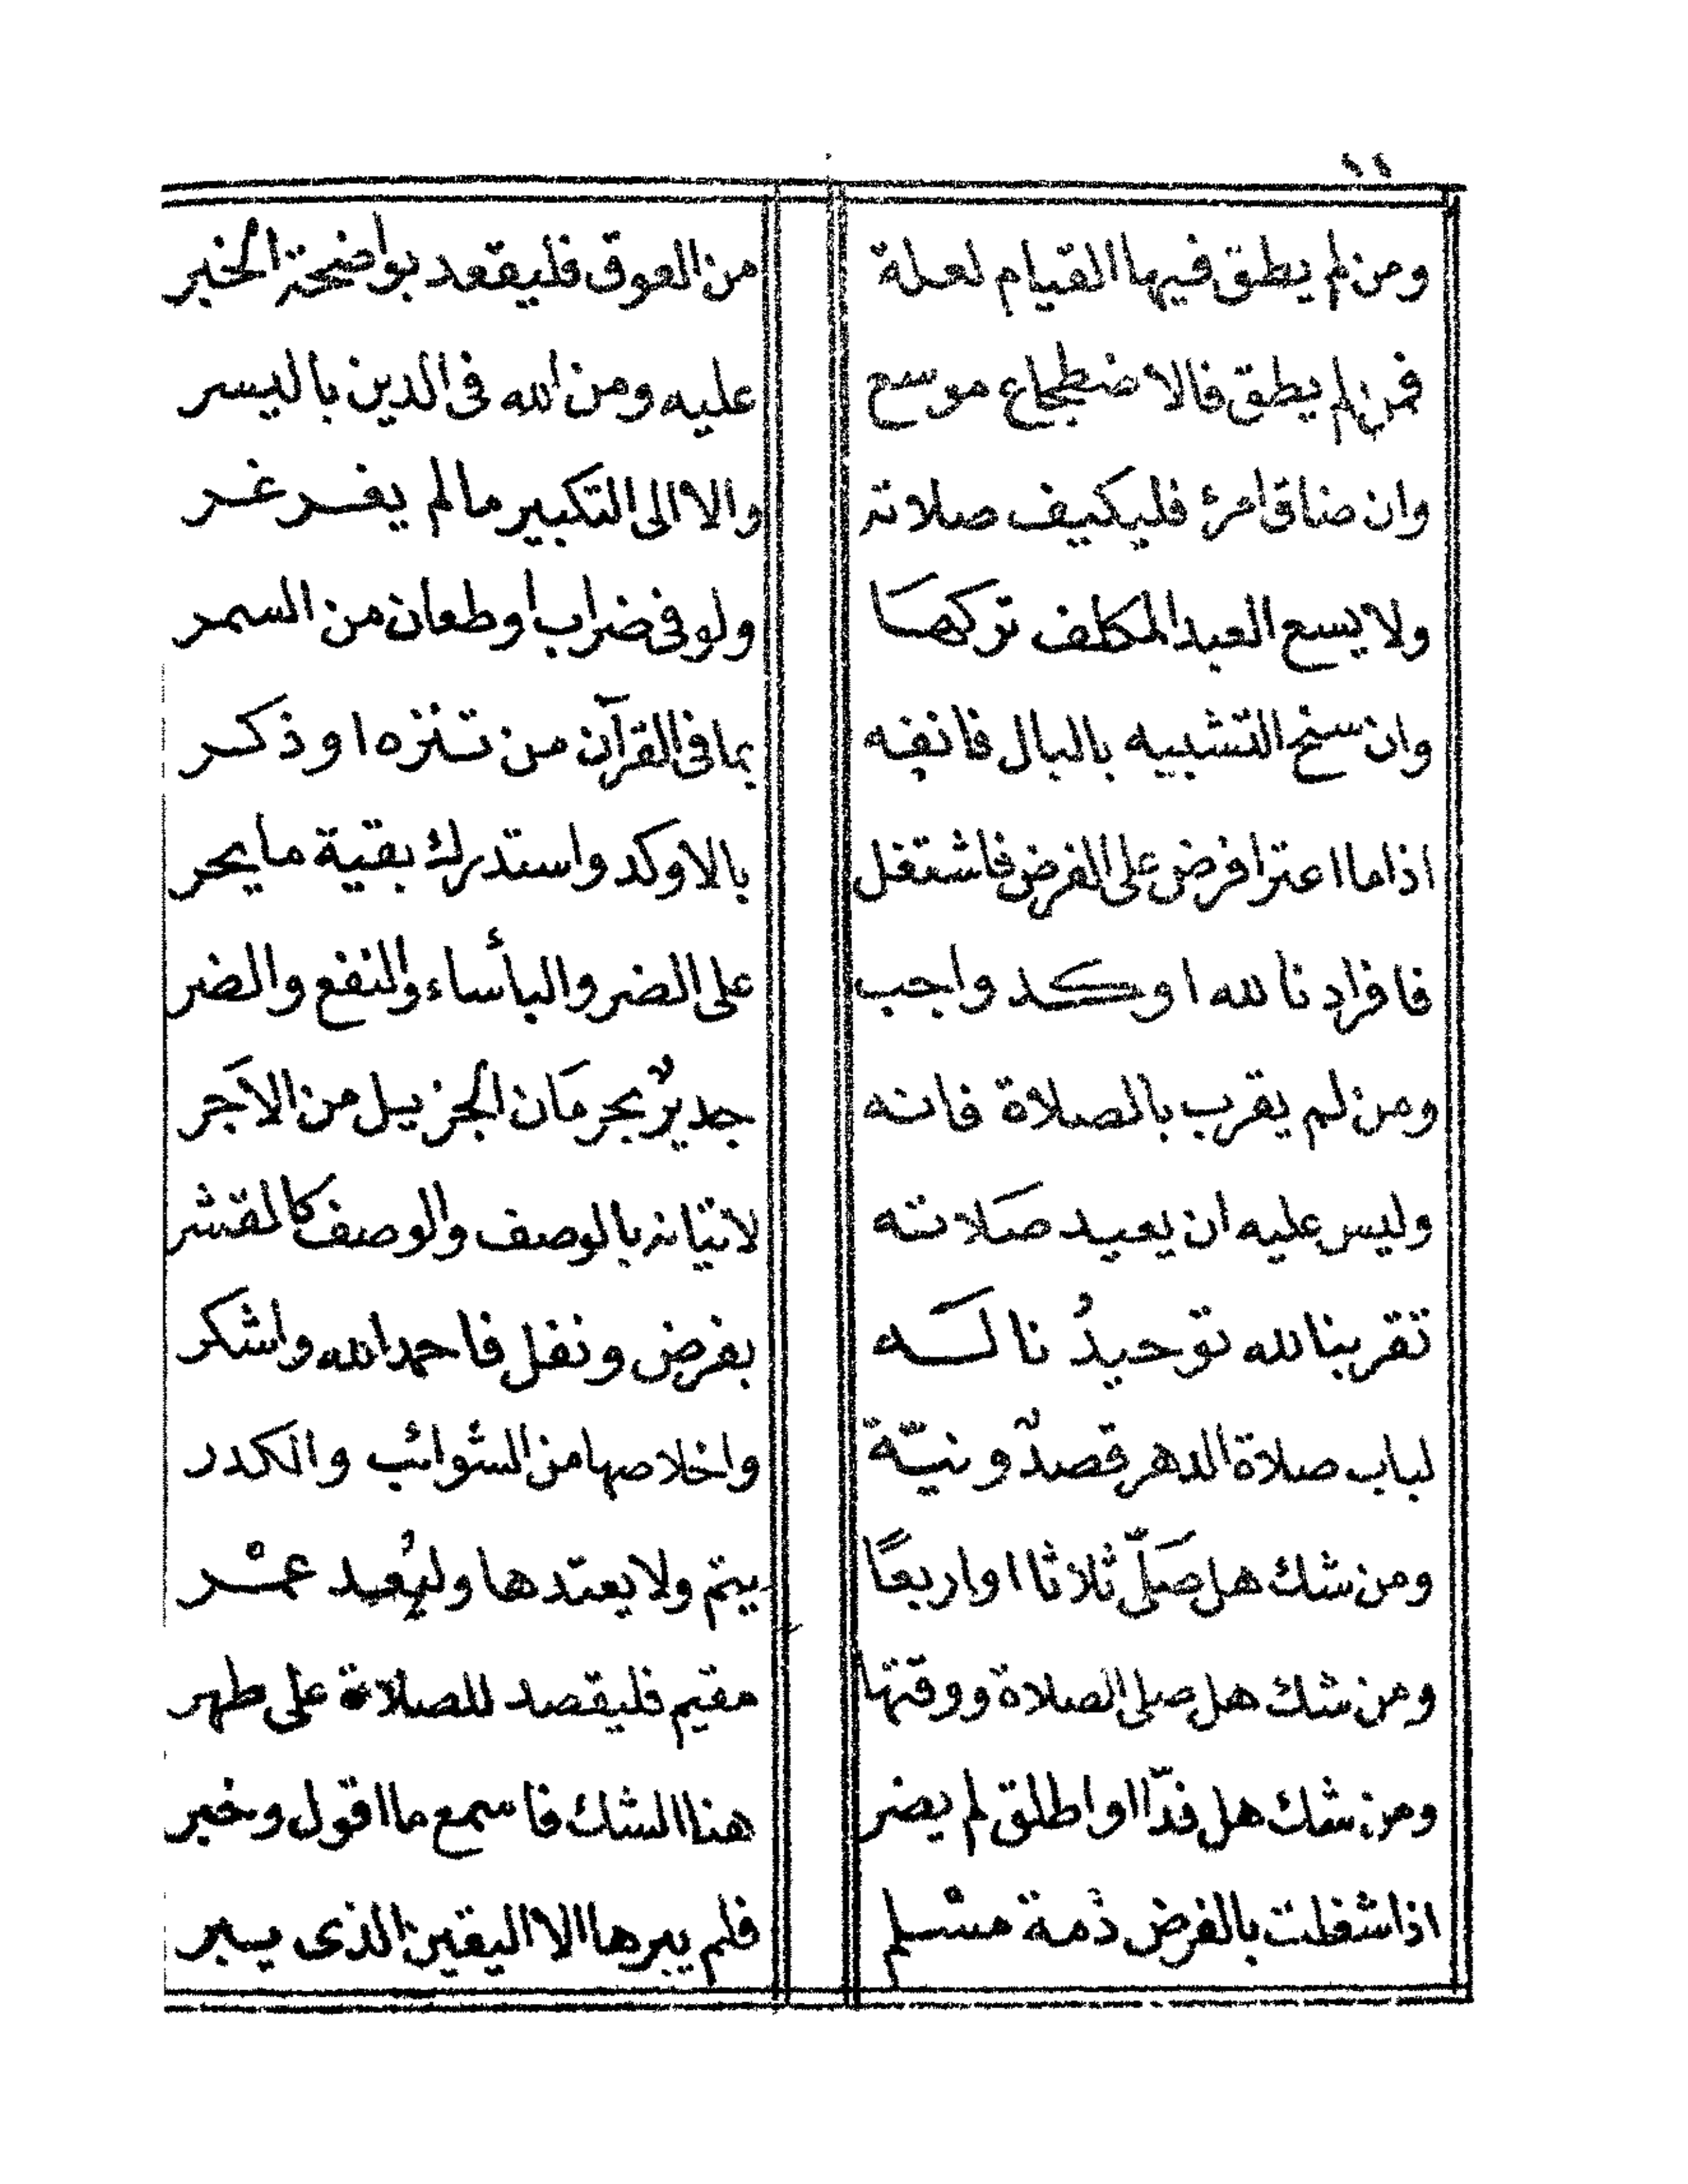 ١٤
ومن لم يطق فيها القيام لعلة من العوق فليقعد بواضحة الخبر
فمن لم يطق فالاضطجاع موسع عليه ومن الله فى الدين باليسر
وان ضاق امرؤ فليكيف صلاته والا الى التكبير مالم يغرغر
ولا يسع العبد المكلف تركها ولو فى ضراب اوطعان من السمر
وان سنح التشبيه بالبال فانفه بما فى القرآن من تنزه اوذكر
اذاما اعترا فرض على الفرض فاشتغل بالاوكد واستدرك بقية مايحر
فافراد نا لله اوكد واجب على الضر والبأساء والنفع والضر
ومن لم يقرب بالصلاة فانه جديرٌ بحرمان الجزيل من الاجر
وليس عليه ان يعيد صلاته لاتيانه بالوصف والوصف كالقشر
تقربنا لله توحيدُ نا له بفرض ونفل فاحمدالله واشكر
لباب صلاة الدهر قصدٌ ونيّة واخلاصها من الشوائب والكدر
ومن شك هل صَلّى ثلاثا اواربعًا يتم ولايعتدها وليُعِد عمْر
ومن شك هل صلى الصلاة ووقتها مقيم فليقصد للصلاة على طهر
ومن شك هل فدّا اواطلق لم يضر هنا الشك فاسمع ما اقول وخبر
اذاشغلت بالفرض ذمة مسْلم فلم يبرها الا اليقين الذى يبر